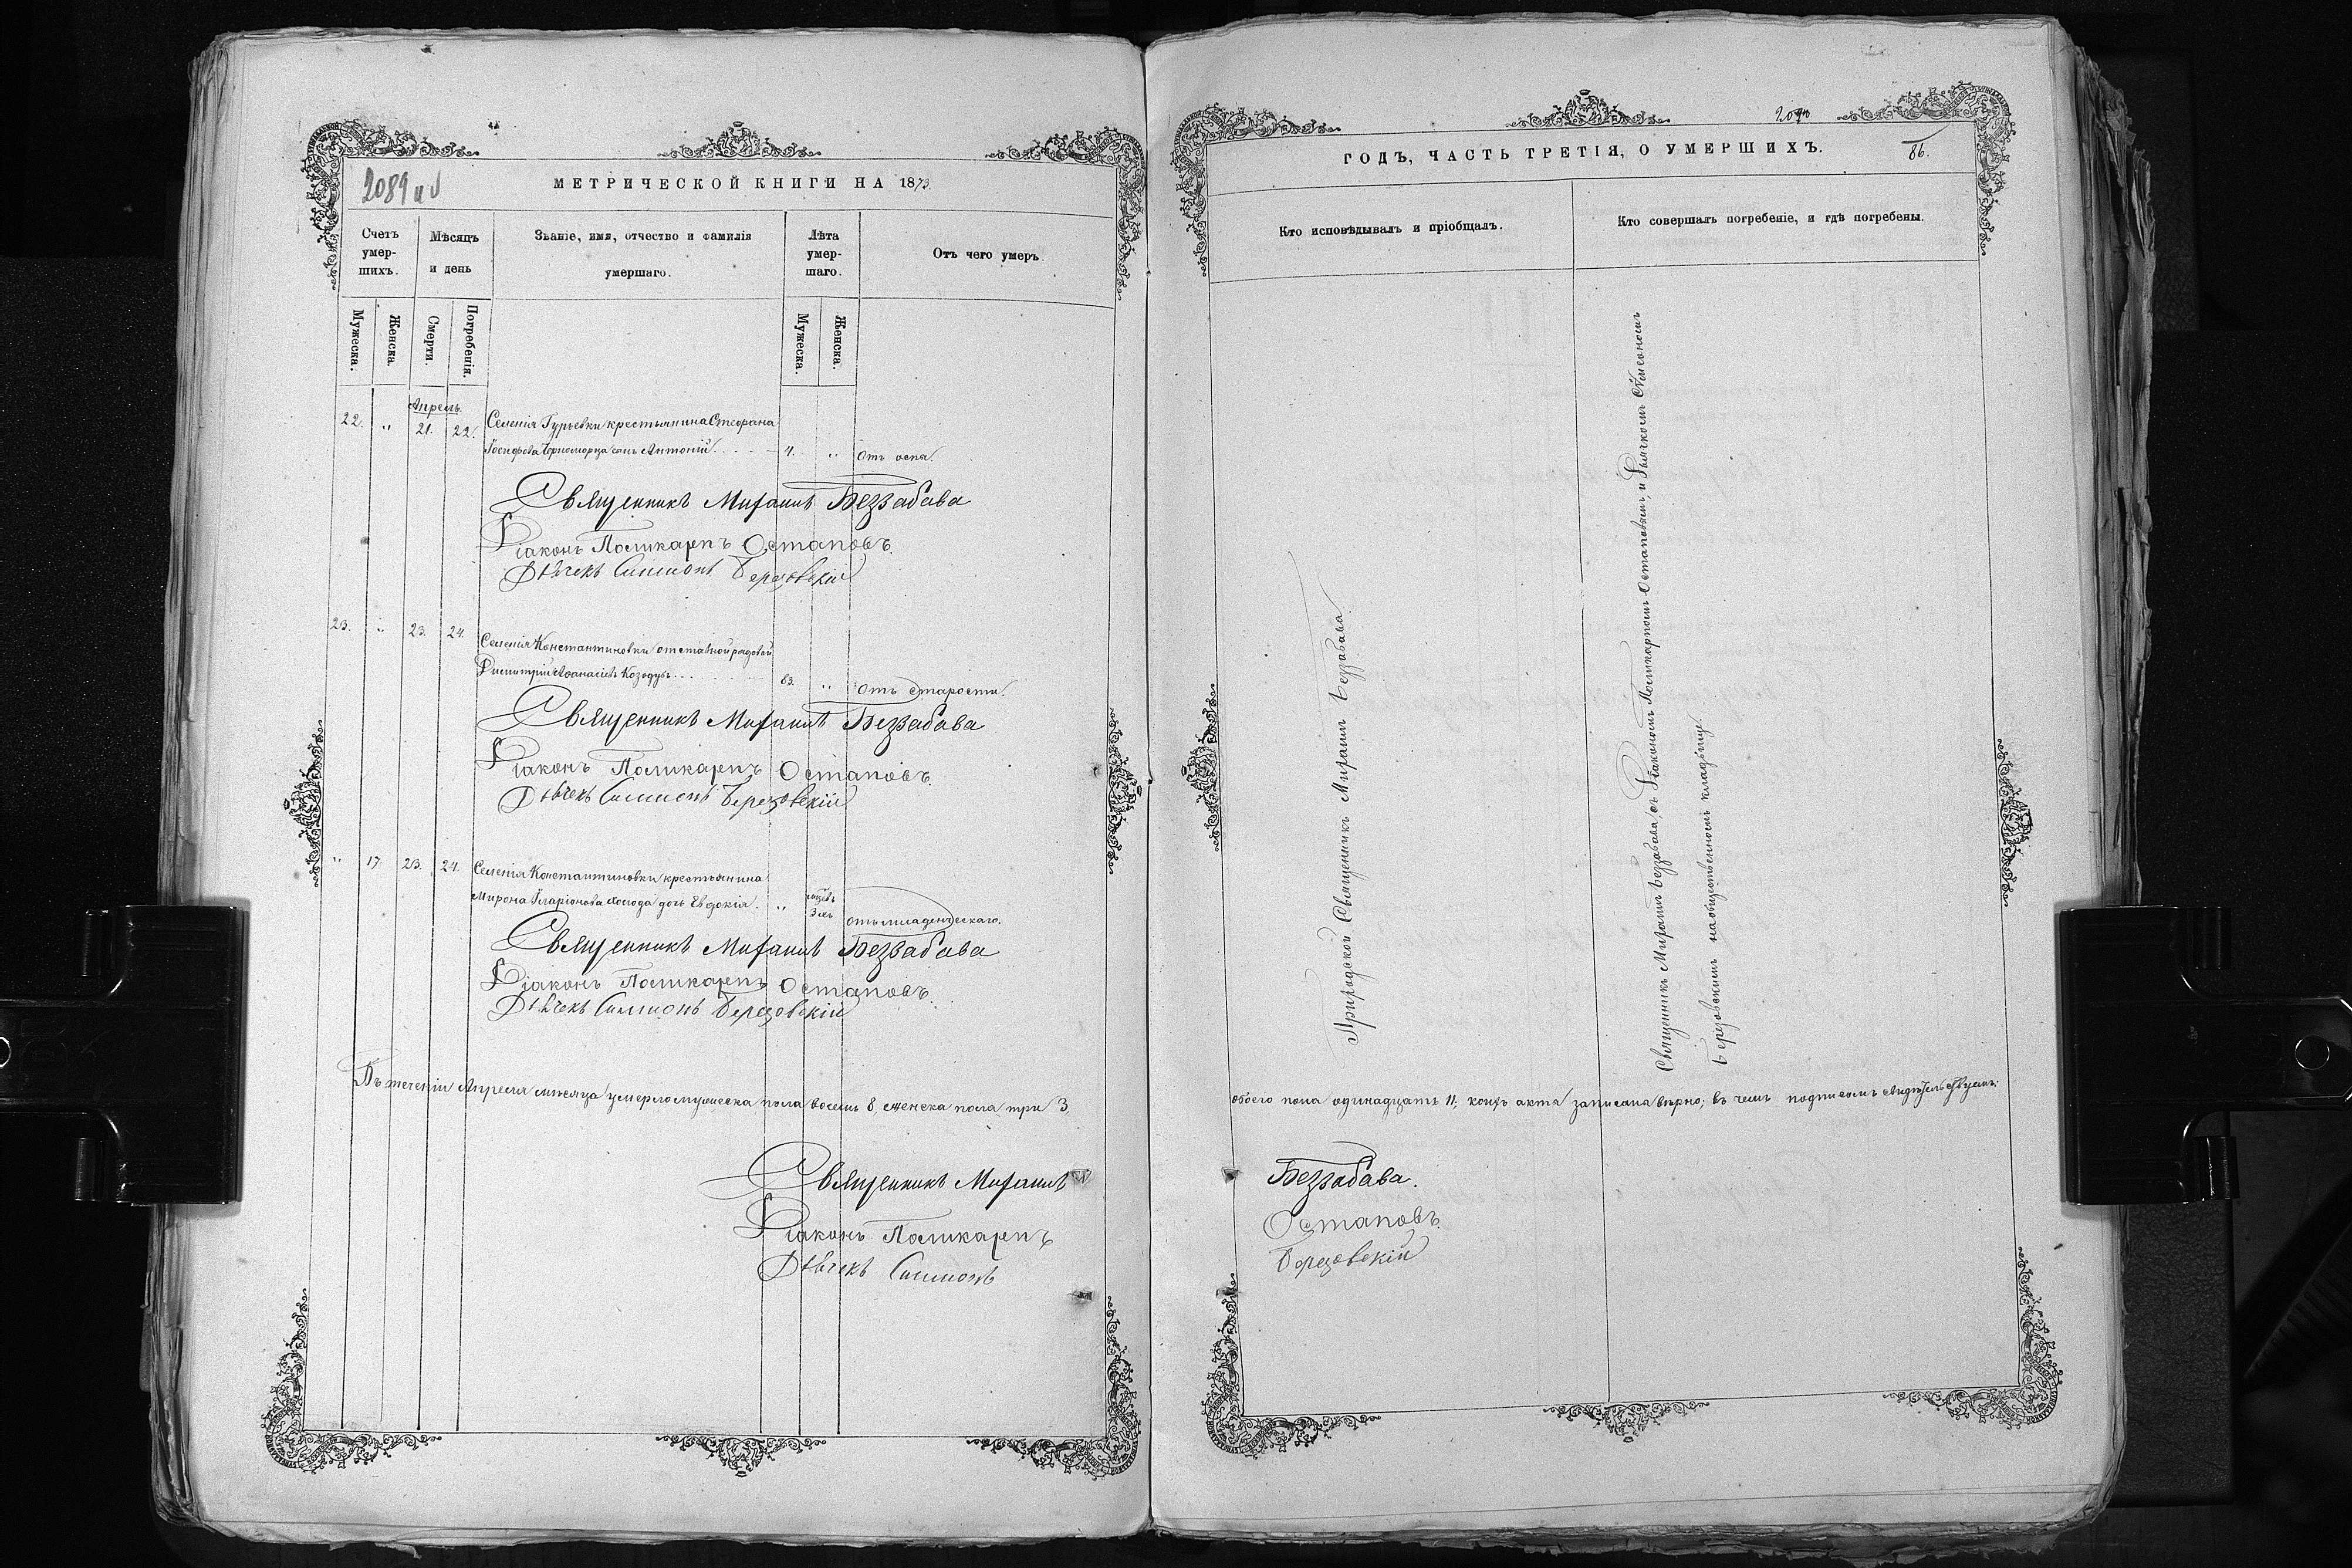 2089 и
МЕТРИЧЕСКОЙ КНИГИ НА 1873.
Счетъ умер-шихъ.
Мѣсяцъ и день
Званіе, имя, отчество и фамилія умершаго.
Лѣта умер-шаго.
Отъ чего умеръ.
Мужеска.
Женска.
Смерти.
Погребенія.
Мужеска.
Женска.
Апрель.
22. " 21. 22. Селенія Гурьевки крестьянина Стефана
Іосифова Черноморца сынъ Антоній 4. " Отъ оспы.
Священникъ Михаилъ Беззабава
Діаконъ Поликарпъ Остаповъ.
Дьячекъ Симеонъ Березовскій
23. " 23. 24. Селенія Константиновки отставной рядовой
Димитрій Аѳанасіевъ Козодуъ 83. " Отъ старости.
Священникъ Михаилъ Беззабава
Діаконъ Поликарпъ Остаповъ.
Дьячекъ Симеонъ Березовскій
" 17. 23. 24. Селенія Константиновки крестьянина
Мирона Иларіонова дочь Евдокія. " 3 мъ отъ младенческаго.
Священникъ Михаилъ Беззабава
Діаконъ Поликарпъ Остаповъ.
Дьячекъ Симеонъ Березовскій
Въ теченіи Апреля мѣсяца умерло мужеска пола восемь 8, женска пола три 3,
Священникъ Михаилъ
Діаконъ Поликарпъ
Дьячекъ Симеонъ
2090
ГОДЪ, ЧАСТЬ ТРЕТІЯ, О УМЕРШИХЪ.
86.
Кто исповѣдывалъ и пріобщалъ.
Кто совершалъ погребеніе, и гдѣ погребены.
Приходской Священникъ Михаилъ Беззабава.
Священникъ Михаилъ Беззабава, съ Діакономъ Поликарпомъ Остаповымъ, и Дьячкомъ Сѵмеономъ
Березовскимъ на общественномъ кладбищѣ.
обоего пола одинадцать 11; коихъ акта записана вѣрно; въ чемъ подписомъ свидѣтельствуемъ:
Беззабава.
Остаповъ.
Березовскій